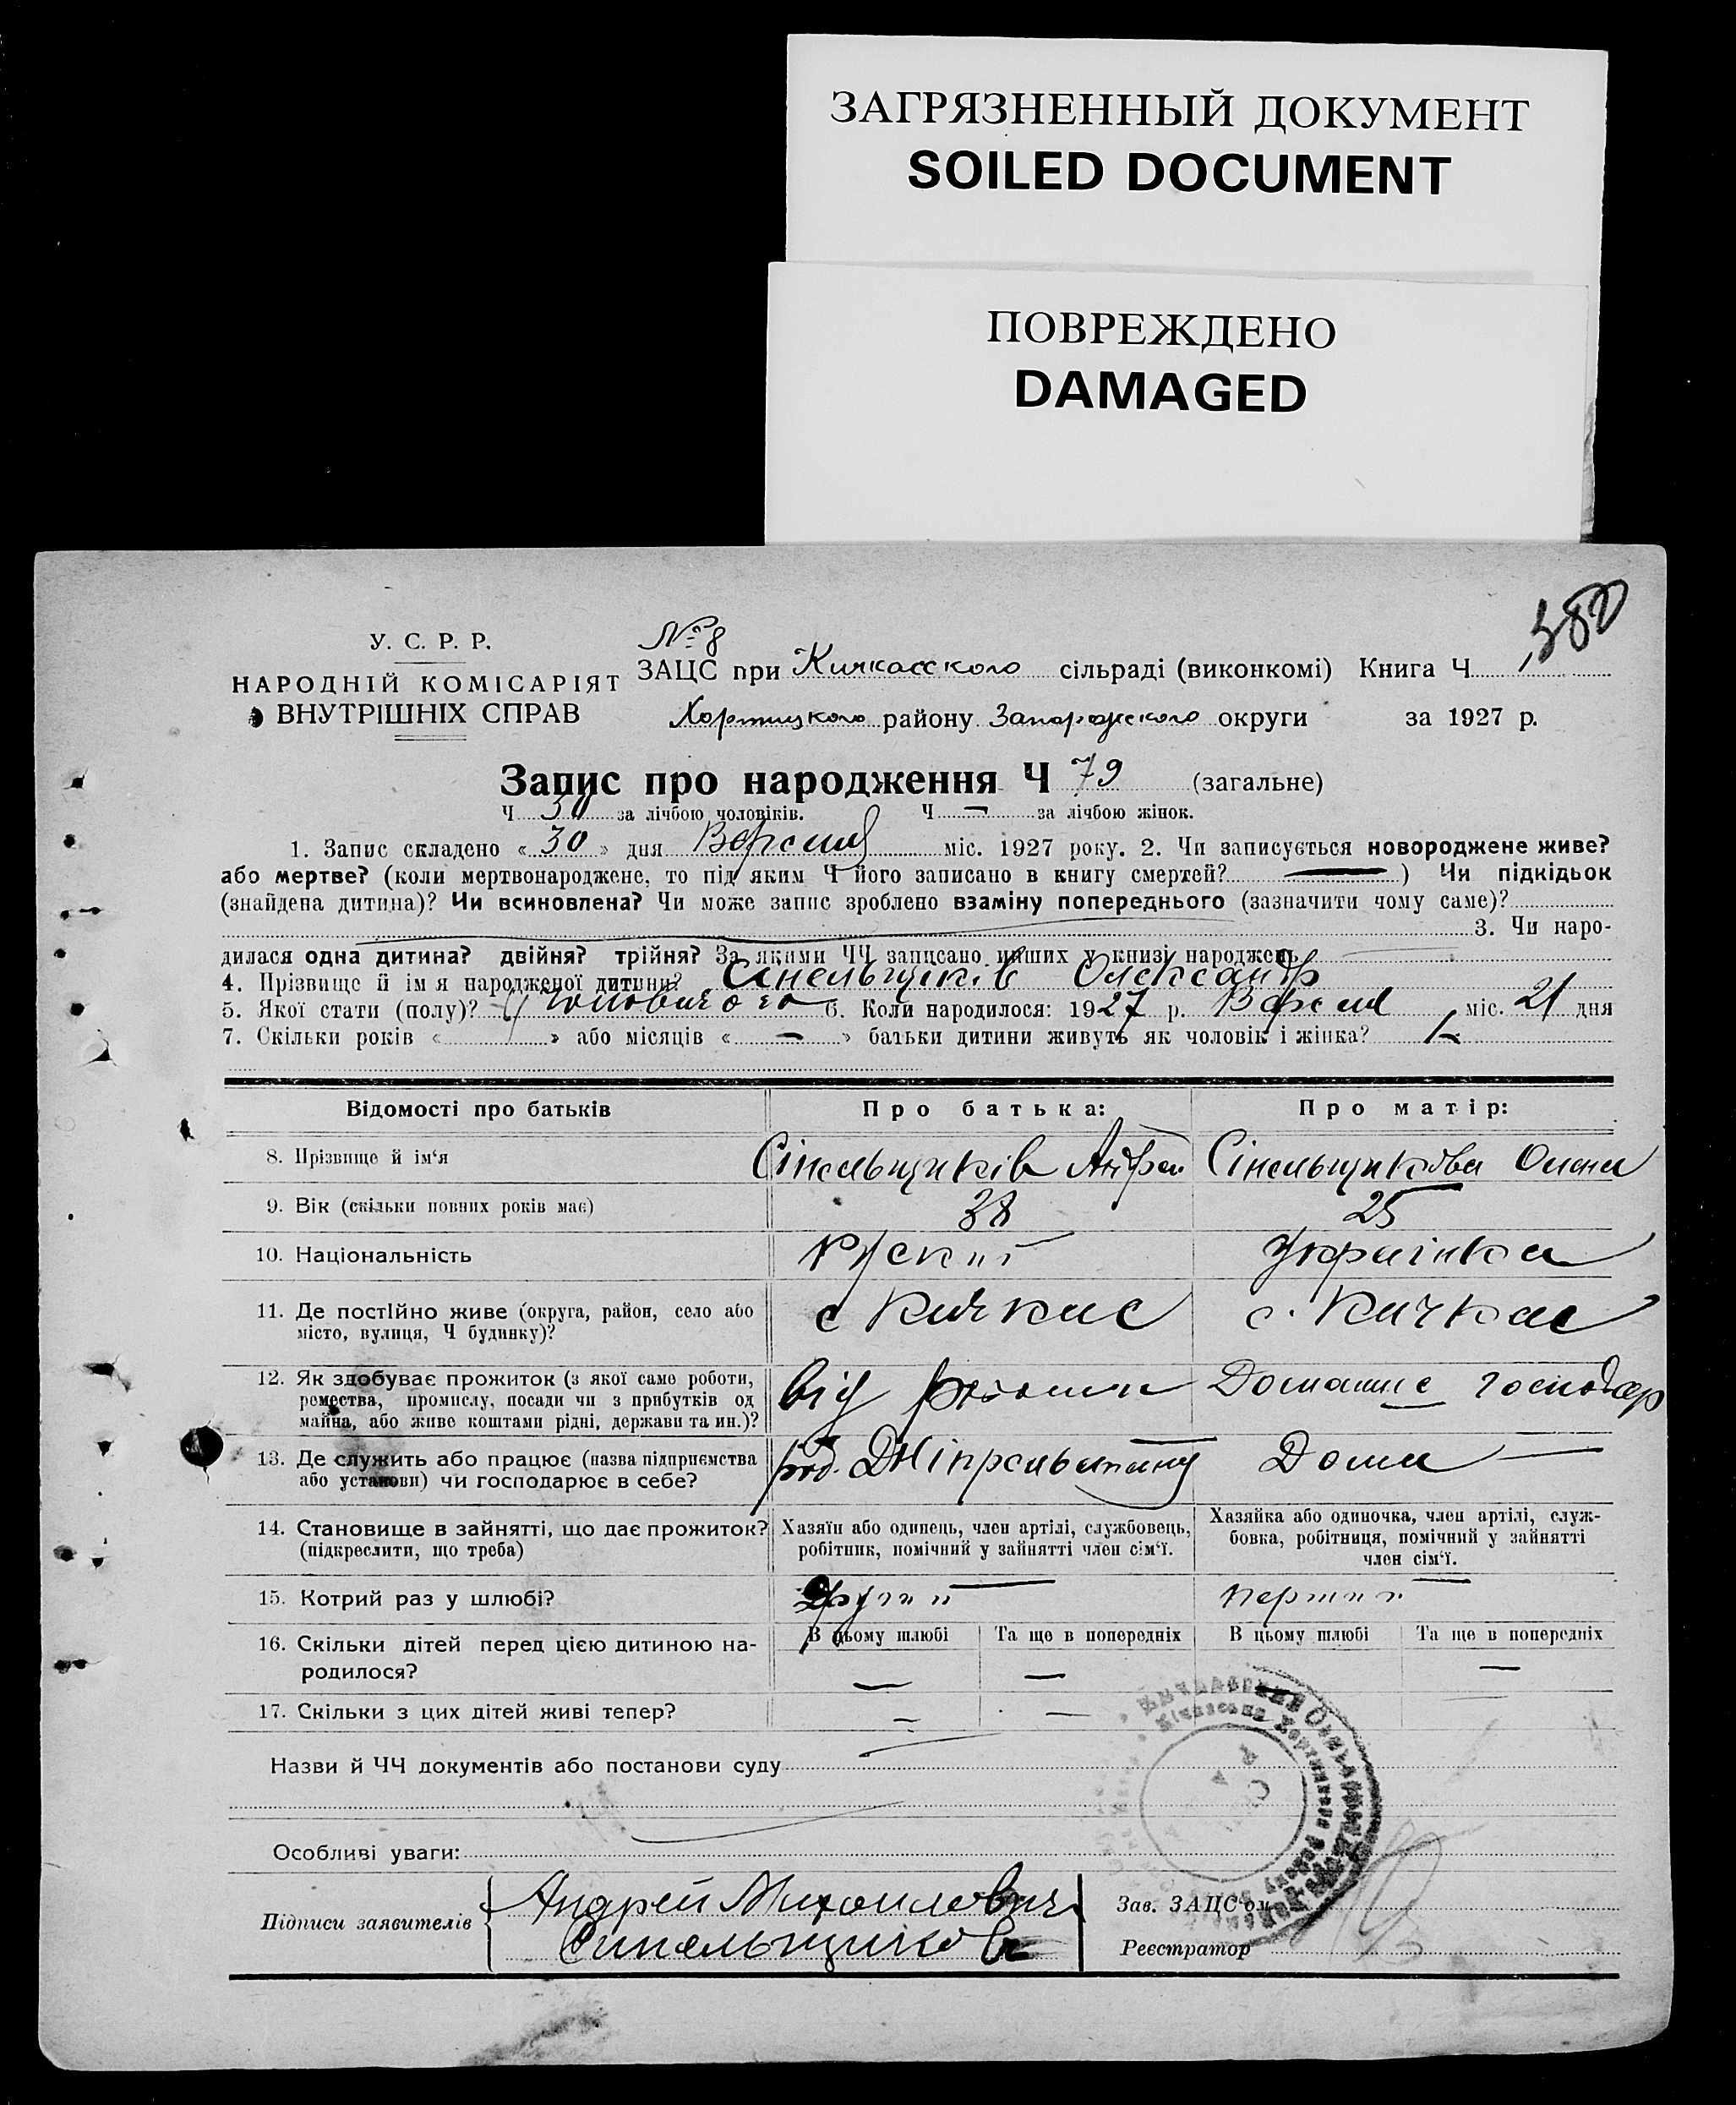 ЗАГРЯЗНЕННЫЙ ДОКУМЕНТ
SOILED DOCUMENT
ПОВРЕЖДЕНО
DAMAGED
380
У. С. Р. Р.
НАРОДНІЙ КОМІСАРІЯТ
ВНУТРІШНІХ СПРАВ
№ 8
ЗАЦС при Кичкасского сільраді (виконкомі) Книга Ч 1
Хортицкого району Запорожского округи за 1927 р.
Запис про народження Ч 79 (загальне)
Ч 30 за лічбою чоловіків. Ч — за лічбою жінок.
1. Запис складено « 30 » дня Версня міс. 1927 року. 2. Чи записується новороджене живе?
або мертве? (коли мертвонароджене, то під яким Ч його записано в книгу смертей? —) Чи підкідьок
(знайдена дитина)? Чи всиновлена? Чи може запис зроблено взаміну попереднього (зазначити чому саме)?
3. Чи наро-
дилася одна дитина? двійня? трійня? За якими ЧЧ записано инших у книзі народжень
4. Прізвище й ім'я народженої дитини? Сінельщиків Олександр
5. Якої стати (полу)? Чоловичого 6. Коли народилося: 1927 р. Версня міс. 21 дня
7. Скільки років « » або місяців « — » батьки дитини живуть як чоловік і жінка?
Відомості про батьків Про батька: Про матір:
8. Прізвище й ім'я Сінельщиків Андрей Сінельщикова Олена
9. Вік (скільки повних років має) 38 25
10. Національність Руский Українка
11. Де постійно живе (округа, район, село або місто, вулиця, Ч будинку)? с Кичкас с. Кичкас
12. Як здобуває прожиток (з якої саме роботи, ремества, промислу, посади чи з прибутків од майна, або живе коштами рідні, держави та ин.)? від роботи Домашнє господар
13. Де служить або працює (назва підприємства або установи) чи господарює в себе? роб. Дніпрельстану Дома
14. Становище в зайнятті, що дає прожиток? (підкреслити, що треба) Хазяїн або одинець, член артілі, службовець, робітник, помічний у зайнятті член сім'ї. Хазяйка або одиночка, член артілі, служ-бовка, робітниця, помічний у зайнятті член сім'ї.
15. Котрий раз у шлюбі? Другий Перший
16. Скільки дітей перед цією дитиною на-родилося? В цьому шлюбі — Та ще в попередніх — В цьому шлюбі — Та ще в попередніх —
17. Скільки з цих дітей живі тепер? — —
Назви й ЧЧ документів або постанови суду
Особливі уваги:
Підписи заявителів Андрей Михайлович
Синельщиков
Зав. ЗАЦС'ом
Реєстратор